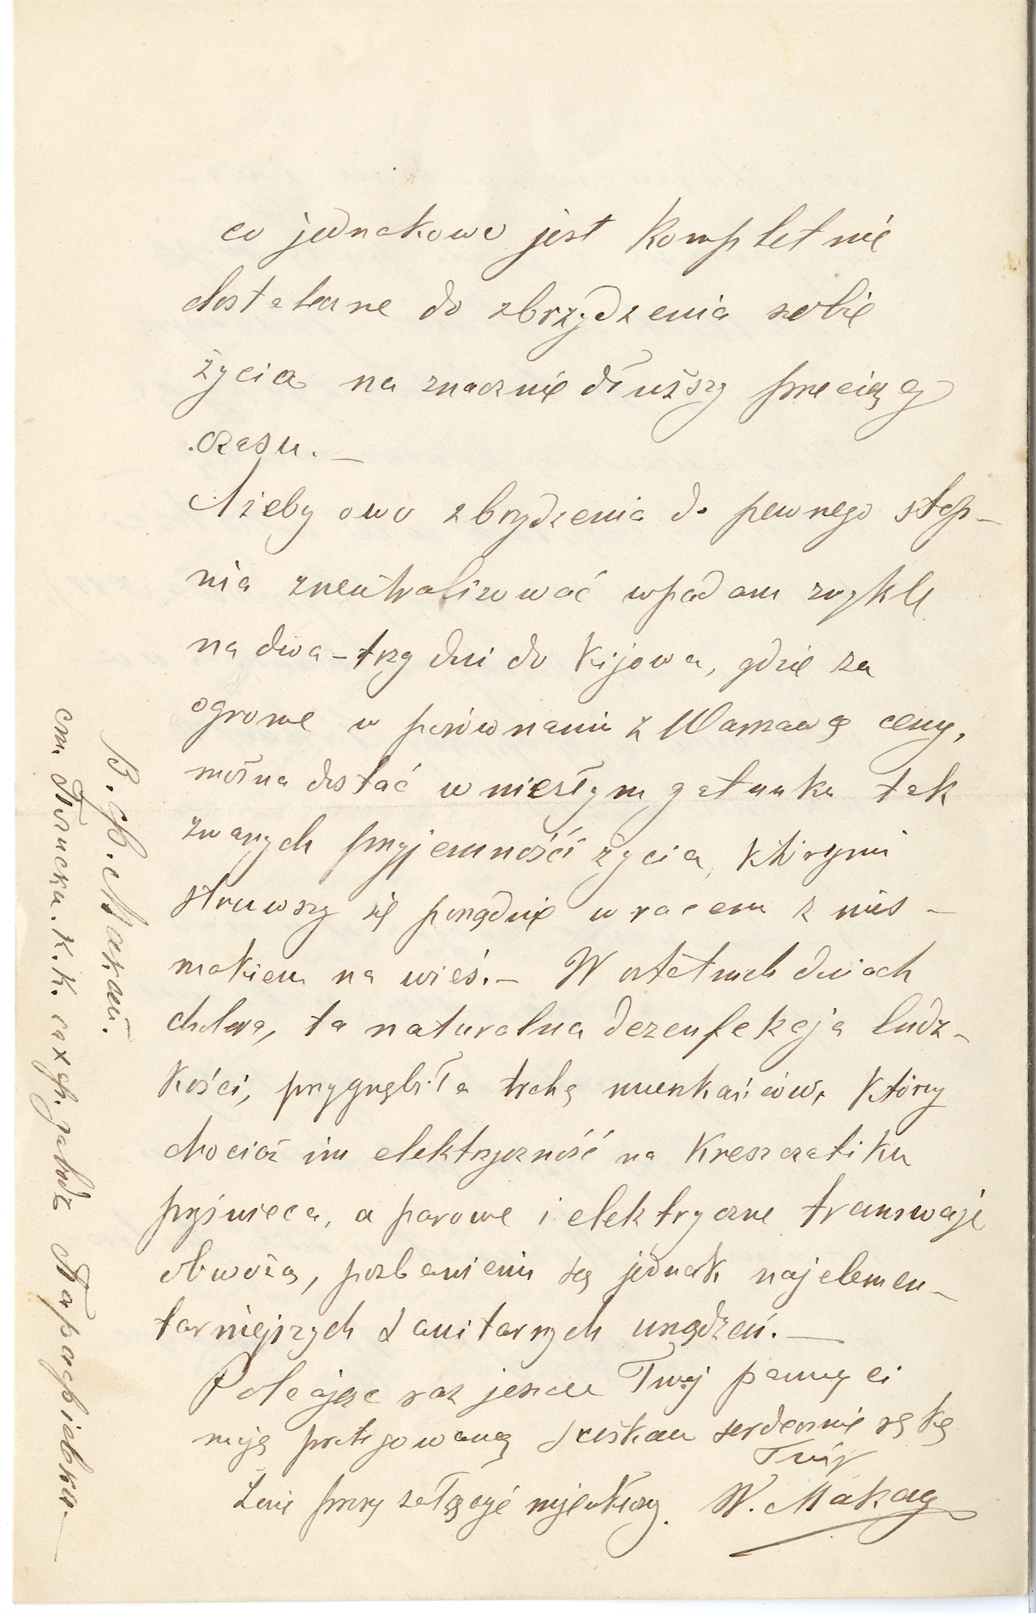 co jednakowo jest kompletnie
dostateczne do zbrzydzenia sobie
życia na znacznie dłuższy przeciąg
czasu. —
Ażeby owo zbrydzenia do pewnego stop-
nia zneutralizować wpadam zwykle
na dwa-trzy dni do Kijowa, gdzie za
ogromne w porównaniu z Warszawą ceny,
można dostać w niezłym gatunku tak
zwanych przyjemności życia, którymi
struwszy się porządnie wracam z nies-
makiem na wieś. — W ostatnich dniach
cholera, ta naturalna dezenfekcja ludz-
kości, przygnębiła trochę mieszkańców, którzy
chociaż im elektryczność na Kreszczatiku
przyświeca, a parowe i elektryczne tramwaje
obwożą, pozbawieni są jednak najelemen-
tarniejszych sanitarnych urządzeń. —
Polecając raz jeszcze Twej pamięci
moją protegowaną ściskam serdecznie rękę
Twój
Żonie proszę załączyć mje ukłony. W. Makay
ст. К. К. сах. Парафіевка. —